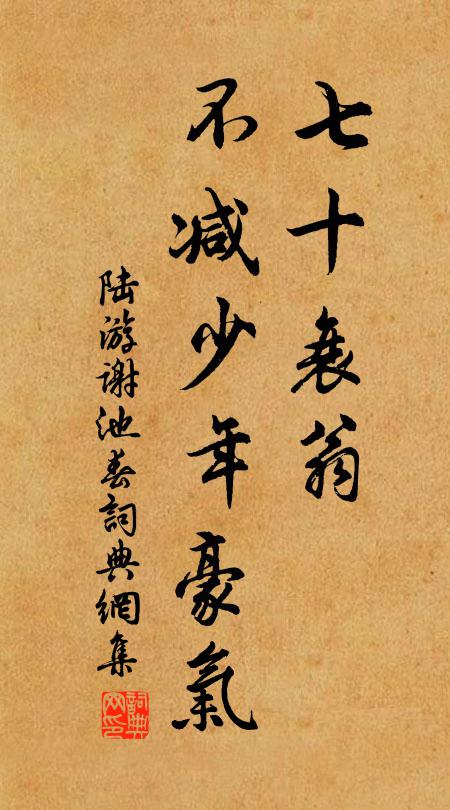 七十衰翁
不减少年豪氣
陆游谢池春詞典網集
詞典網印